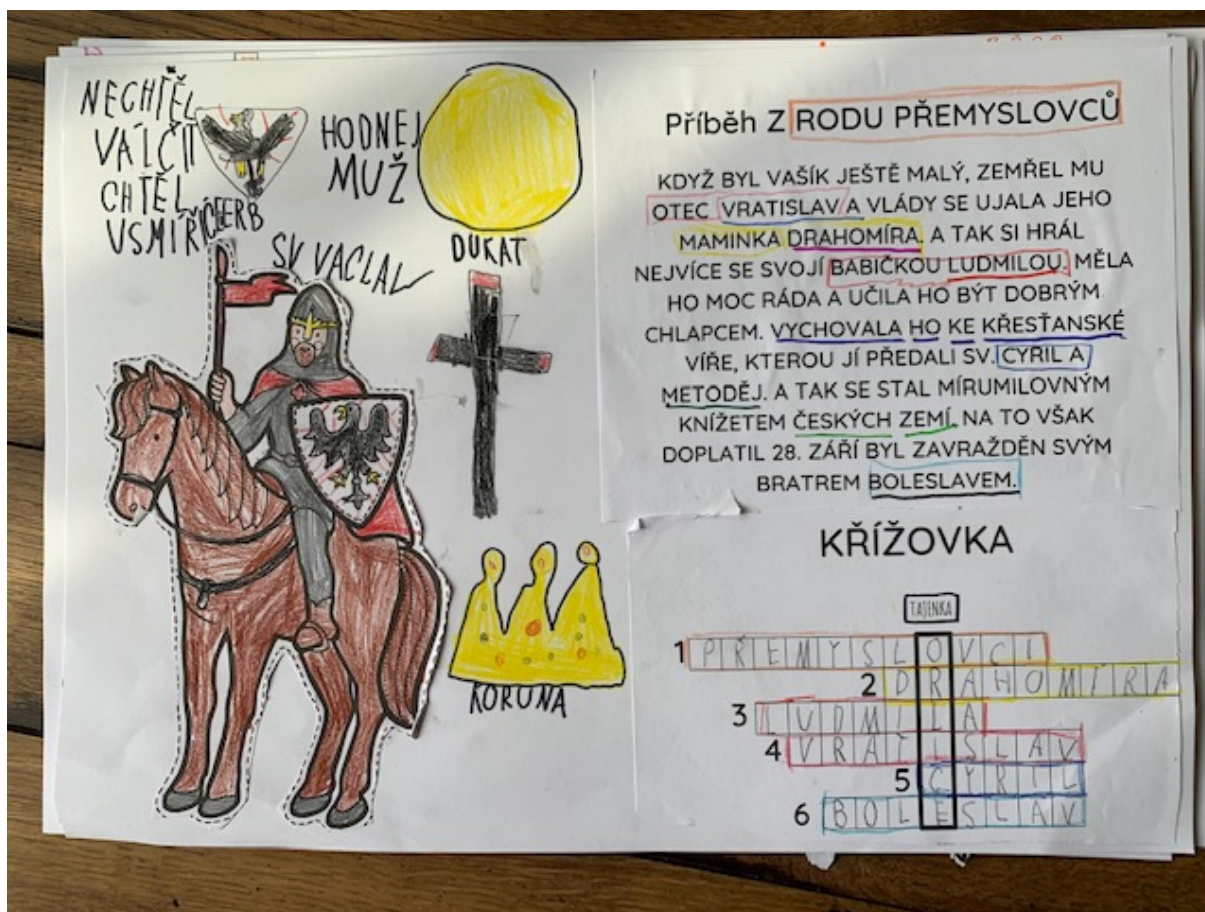 NECHTĚL
VÁLČIT
CHTĚL
USMÍŘIC
ERB
HODNEJ
MUŽ
SV VACLAV
DUKAT
KORUNA
Příběh Z RODU PŘEMYSLOVCŮ
KDYŽ BYL VAŠÍK JEŠTĚ MALÝ, ZEMŘEL MU
OTEC VRATISLAV A VLÁDY SE UJALA JEHO
MAMINKA DRAHOMÍRA. A TAK SI HRÁL
NEJVÍCE SE SVOJÍ BABIČKOU LUDMILOU. MĚLA
HO MOC RÁDA A UČILA HO BÝT DOBRÝM
CHLAPCEM. VYCHOVALA HO KE KŘESŤANSKÉ
VÍŘE, KTEROU JÍ PŘEDALI SV. CYRIL A
METODĚJ. A TAK SE STAL MÍRUMILOVNÝM
KNÍŽETEM ČESKÝCH ZEMÍ. NA TO VŠAK
DOPLATIL 28. ZÁŘÍ BYL ZAVRAŽDĚN SVÝM
BRATREM BOLESLAVEM.
KŘÍŽOVKA
TAJENKA
1 PŘEMYSLOVCI
2 DRAHOMÍRA
3 LUDMILA
4 VRATISLAV
5 CYRIL
6 BOLESLAV